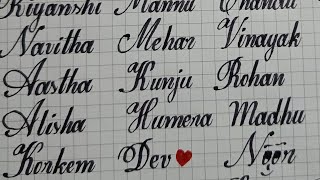 Riyanshi Mannu Chandu
Navitha Mehar Vinayak
Aastha Kunju Rohan
Alisha Humera Madhu
Korkem Dev❤ Noor